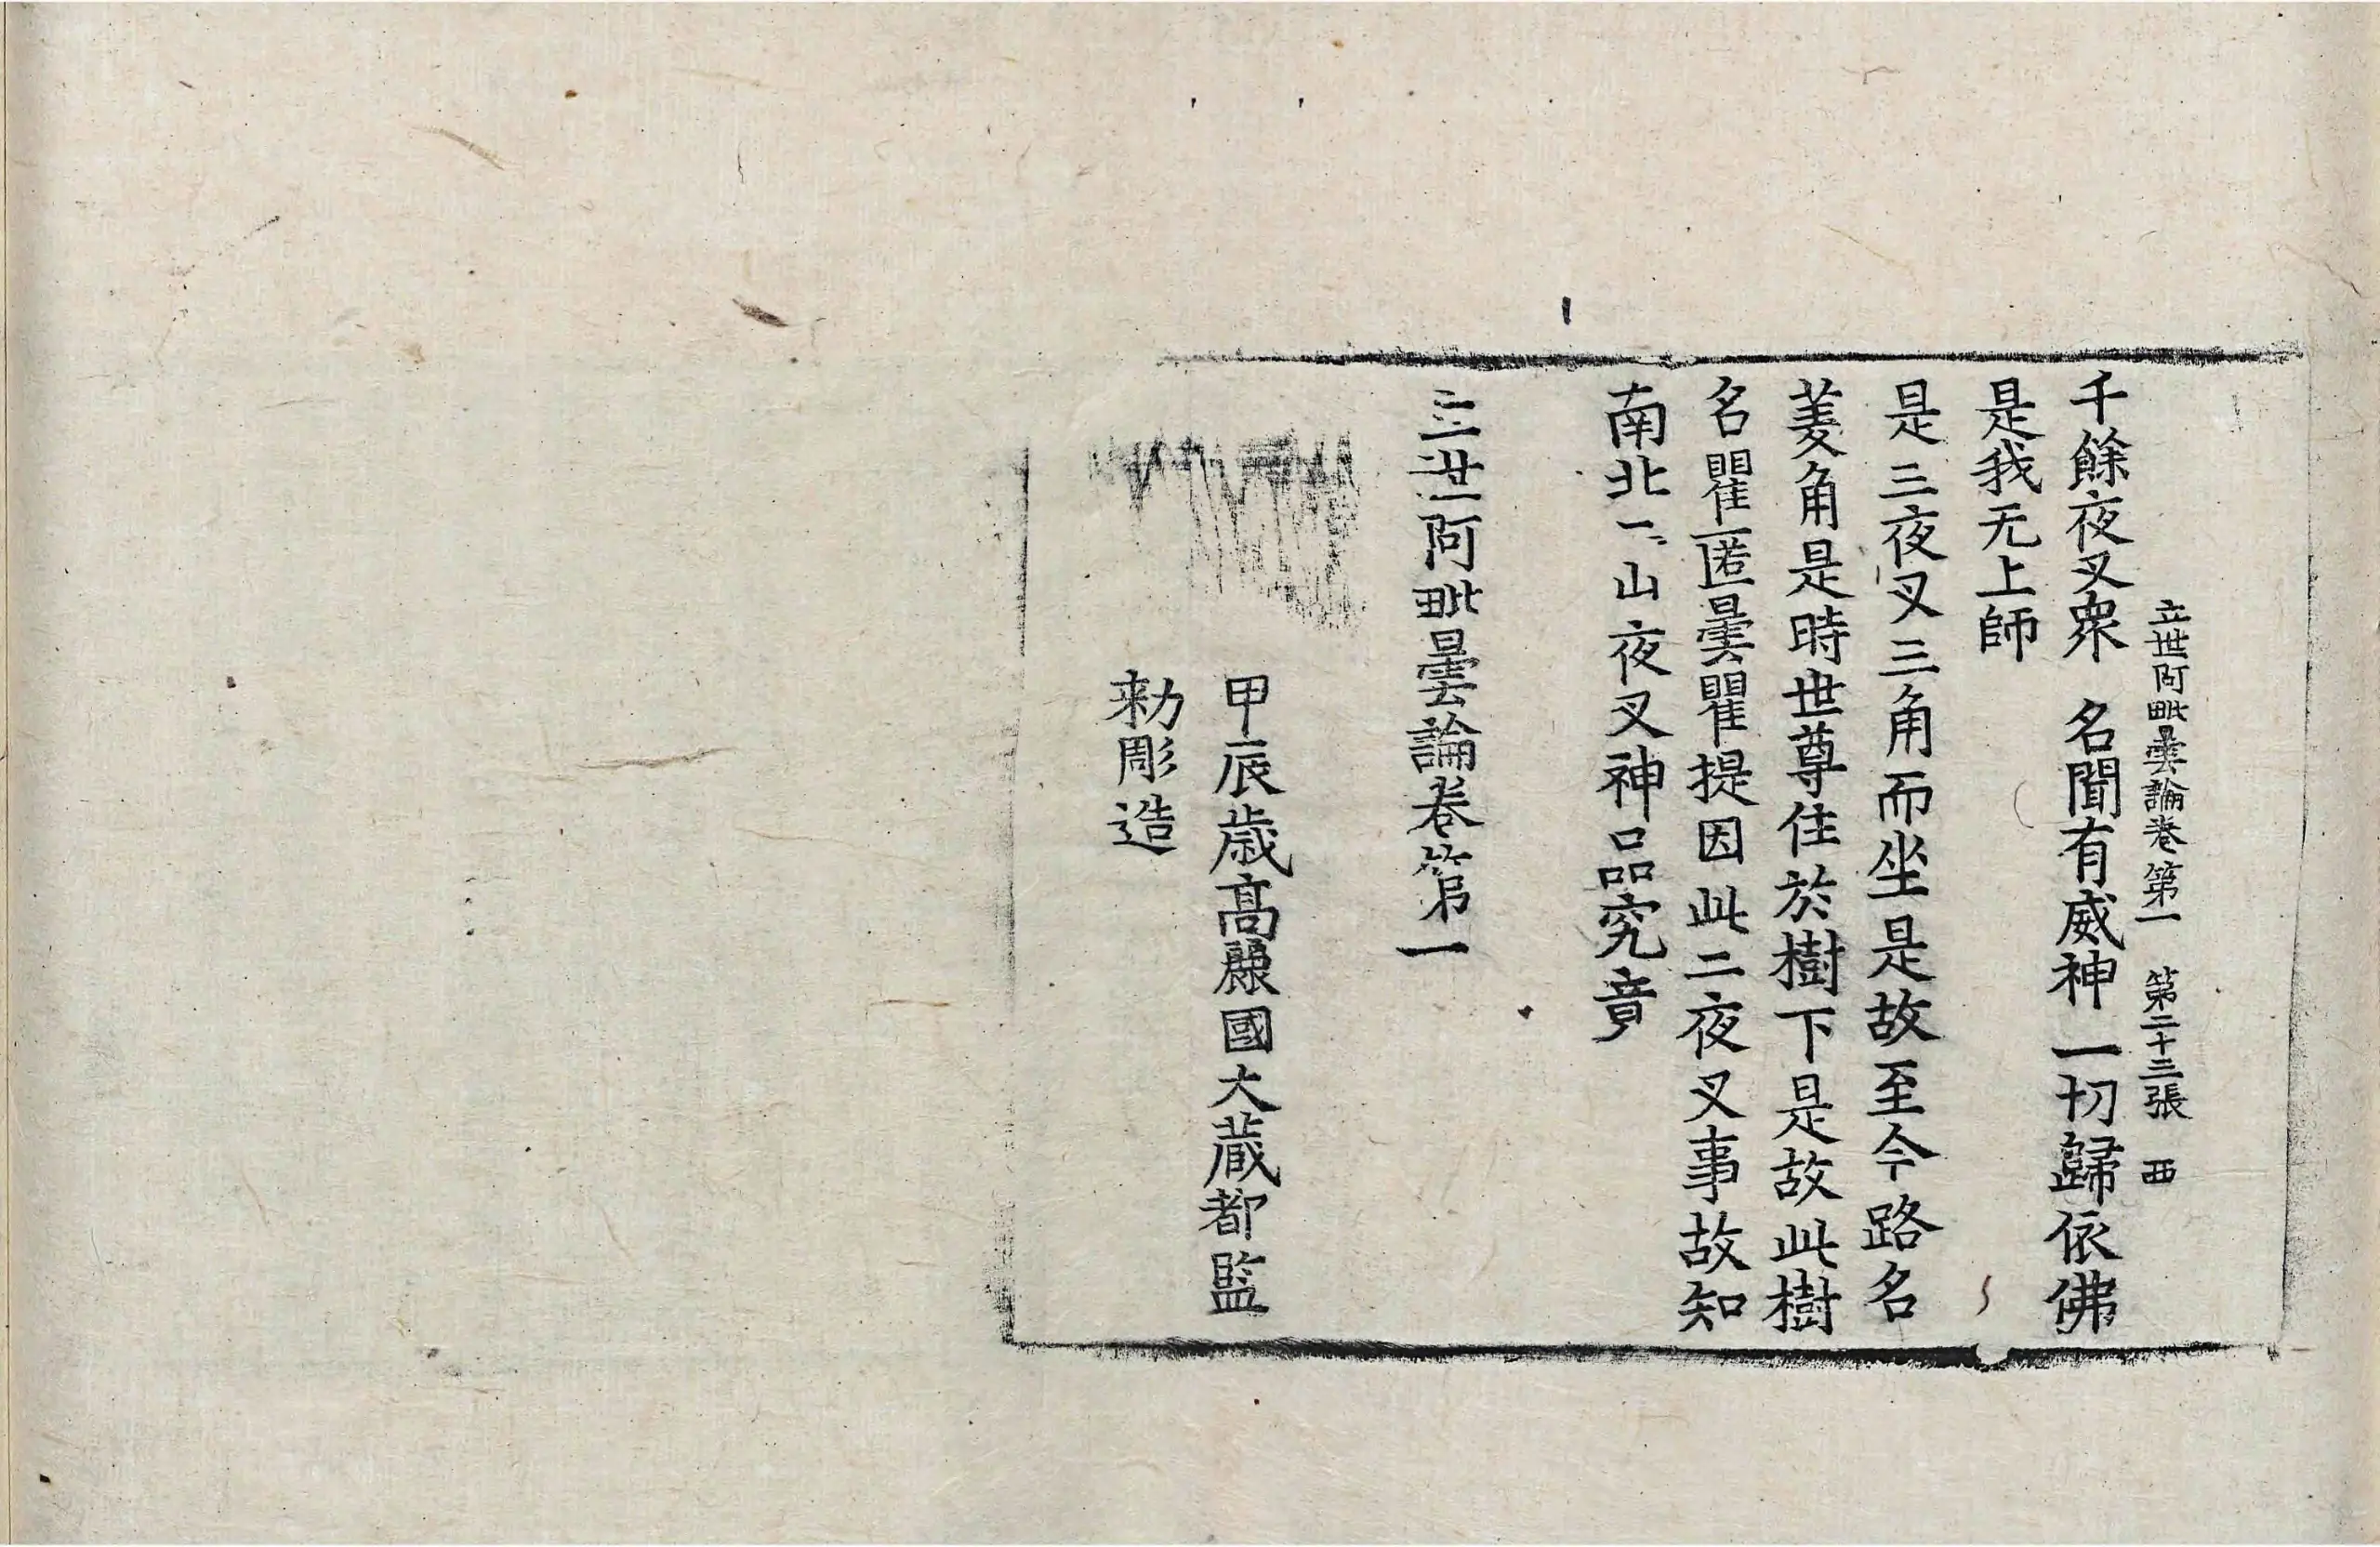 立世阿毗曇論卷第一　第二十三張　西
千餘夜叉衆　名聞有威神一切歸依佛
是我无上師
是三夜叉三角而坐是故至今路名
菱角是時世尊住於樹下是故此樹
名瞿匿曇瞿提因此二夜叉事故知
南北二山夜叉神品究竟
立世阿毗曇論卷第一
甲辰歲高麗國大藏都監
勅彫造